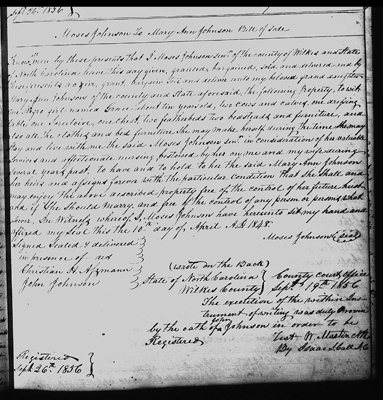 Sept 26. 1856
Moses Johnson To Mary Ann Johnson Bill of Sale
Know men by these presents that I Moses Johnson Senr of the county of Wilkes and State
of North Carolina have this day given, granted, bargained, sold and delivered and by
these presents give, grant, bargain, and deliver unto my beloved grand daughter
Mary Ann Johnson of the county and State aforesaid, the following Property, to wit
one Negro girl named Grace about ten years old, two cows and calves, one dressing
table one bureau, one chest, two featherbeds two bedsteads and furniture, and
also all the clothes and bed furniture she may make herself during the time she may
stay and live with me the said Moses Johnson Senr in consideration of the valuable
services and affectionate nursing bestowed by her on me and my wife during
several years past, to have and to hold to her the said Mary Ann Johnson
her heirs and assigns forever with the particular Condition that she shall and
may enjoy the above described property free of the control of her future husb
and if She should Marry, and free of the control of any person or persons what
soever. In Witness whereof I, Moses Johnson have hereunto set my hand and
affixed my Seal this the 10th day of April A.D. 1848.
Moses Johnson (Seal)
Signed Sealed & delivered
in presence of
Christian H.
John Johnson
(Wrote on the Back)
State of North Carolina
Wilkes County
County court office
Sept 19th 1856
The execution of the within Ins
trument of writing was duly Proven
by the oath of John Johnson in order to be
Registered
Test W. Martin
By Isaac S. Call
Registered
Sept 26th 1856